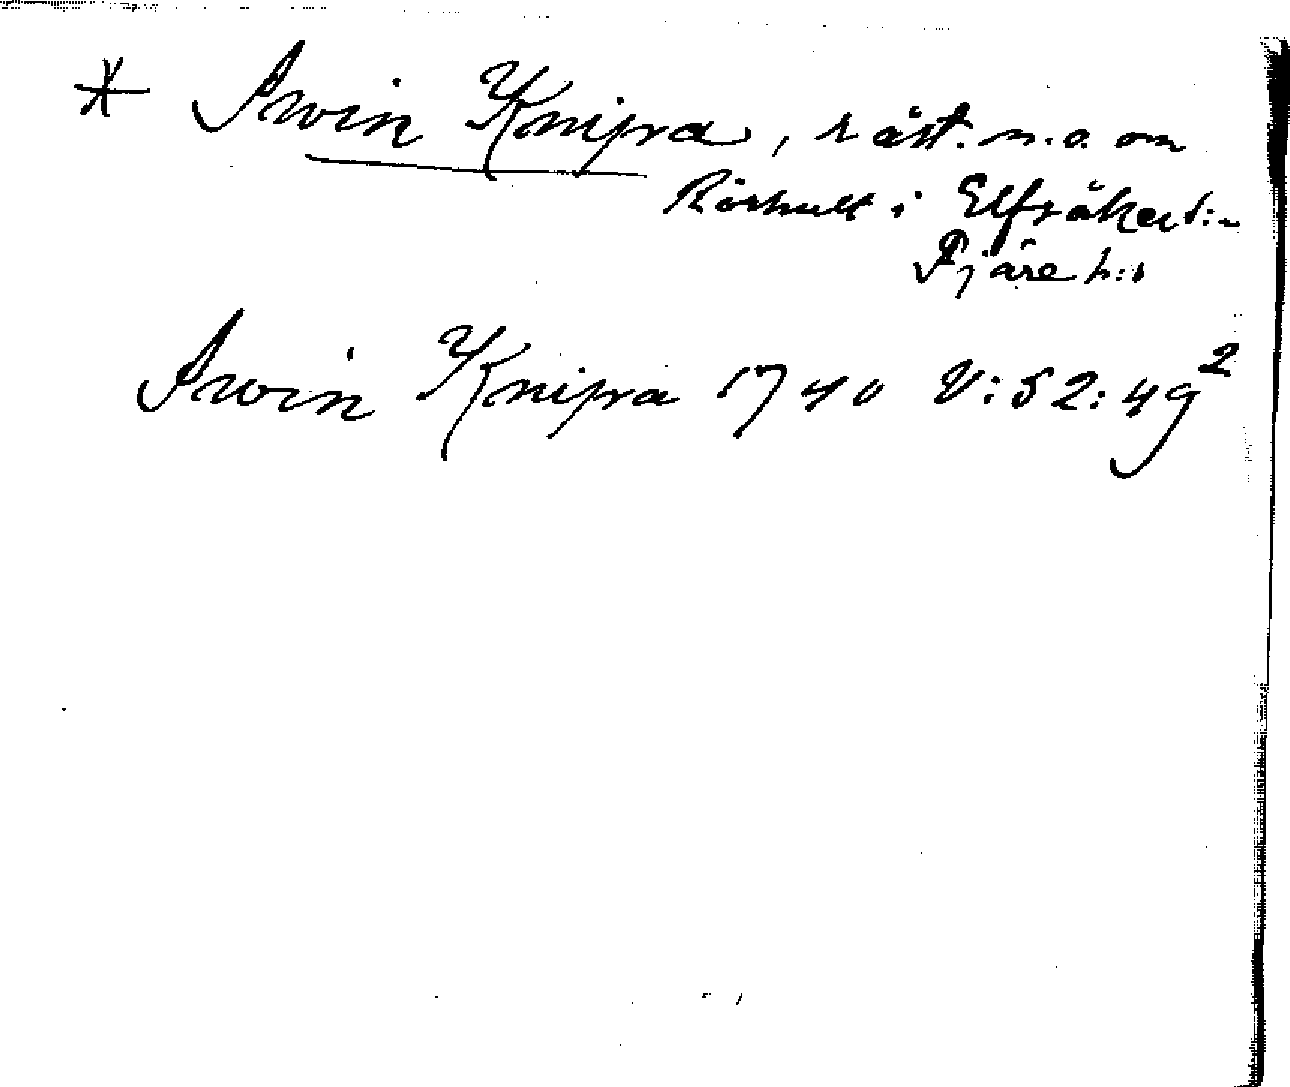 * Swin Knipra, råst. n.o. om
Rörhult i Elfsåker s:n
Fjäre h:d
Swin Knipra 1740 V:52:49²